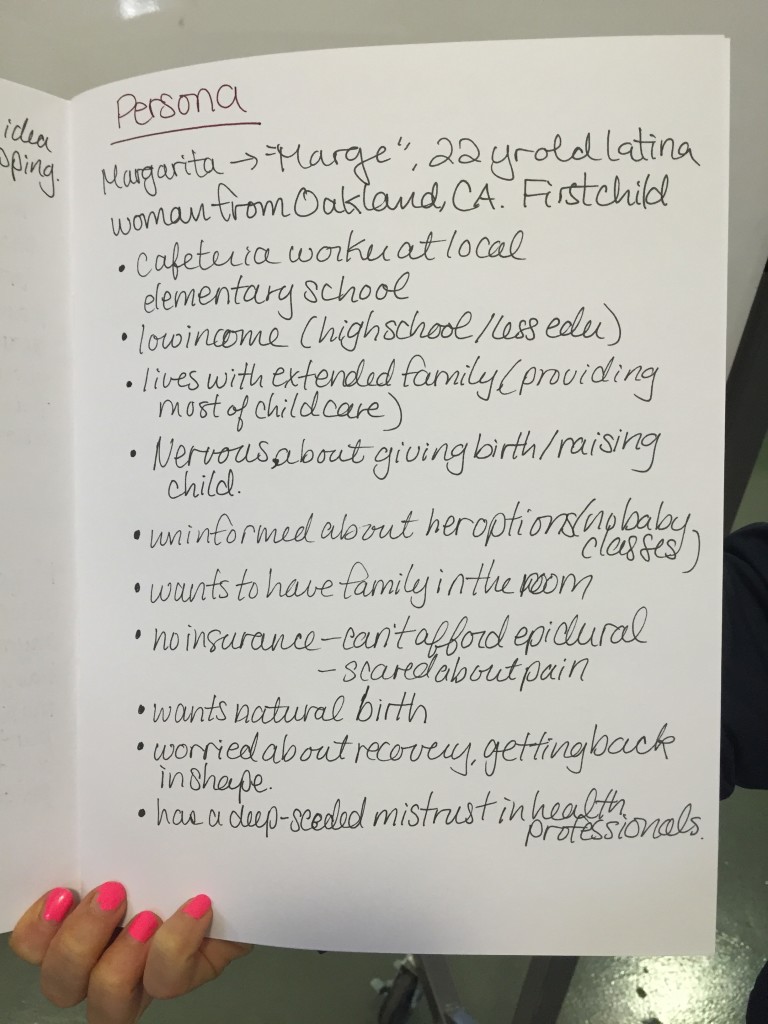 idea
oping.
Persona
Margarita → "Marge", 22 yr old latina
woman from Oakland, CA. First child
• cafeteria worker at local
elementary school
• low income (high school/less edu)
• lives with extended family (providing
most of child care)
• Nervous about giving birth/raising
child.
• uninformed about her options (no baby
classes)
• wants to have family in the room
• no insurance - can't afford epidural
- scared about pain
• wants natural birth
• worried about recovery, getting back
in shape.
• has a deep-seeded mistrust in health
professionals.